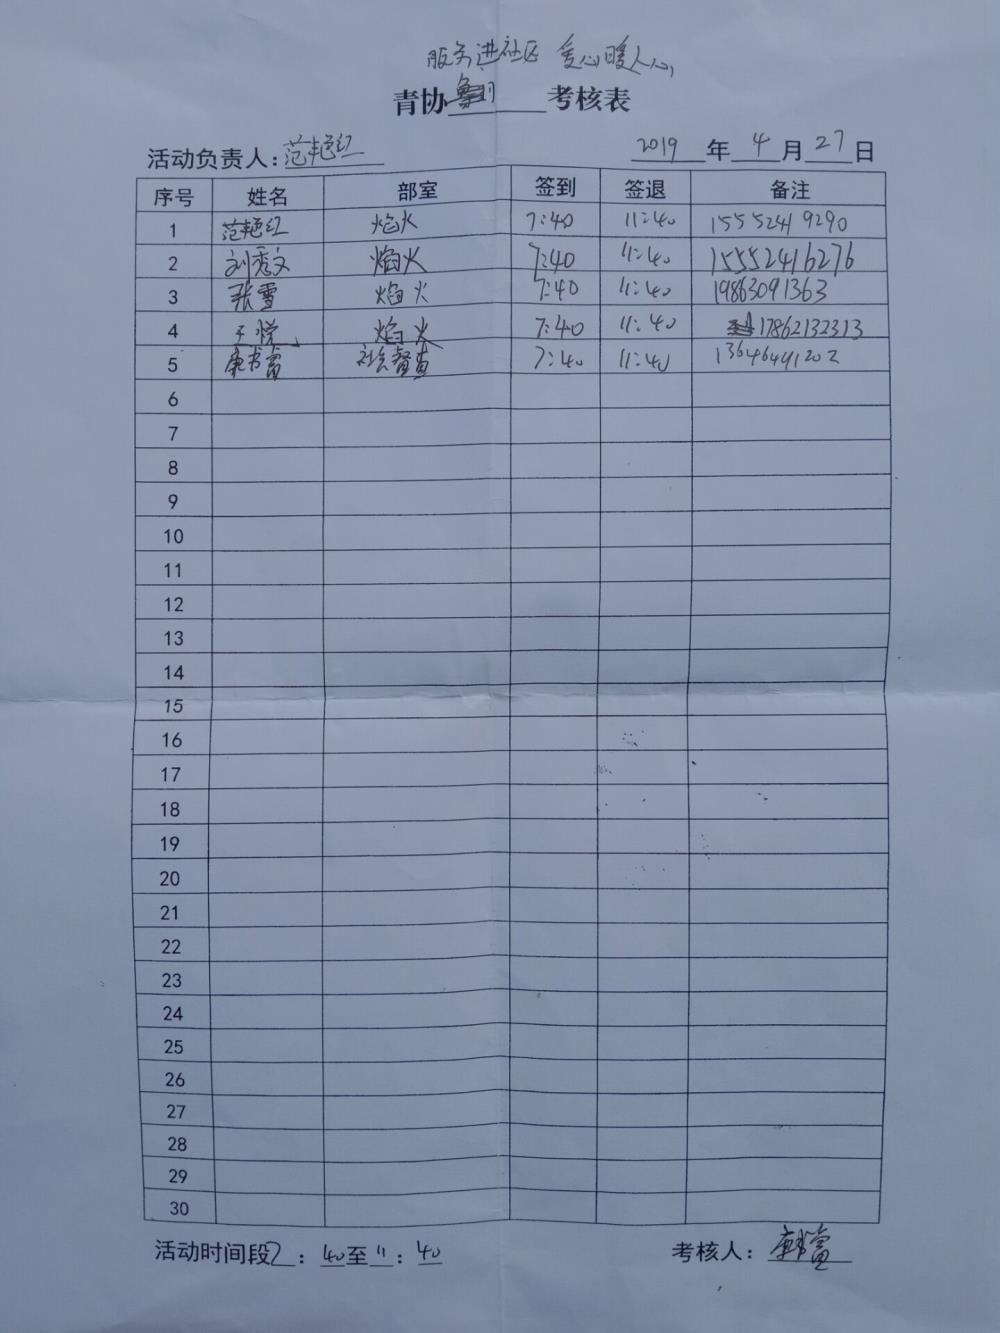 服务进社区 爱心暖人心
青协 考核表
活动负责人：范艳红 2019 年 4 月 27 日
序号 姓名 部室 签到 签退 备注
1 范艳红 焰火 7:40 11:40 15552419290
2 刘秀文 焰火 7:40 11:40 15552416276
3 张雪 焰火 7:40 11:40 19863091363
4 王悦 焰火 7:40 11:40 17862132313
5 康书富 社会督查 7:40 11:40 13646491202
6
7
8
9
10
11
12
13
14
15
16
17
18
19
20
21
22
23
24
25
26
27
28
29
30
活动时间段 7：40至11：40 考核人：康书富